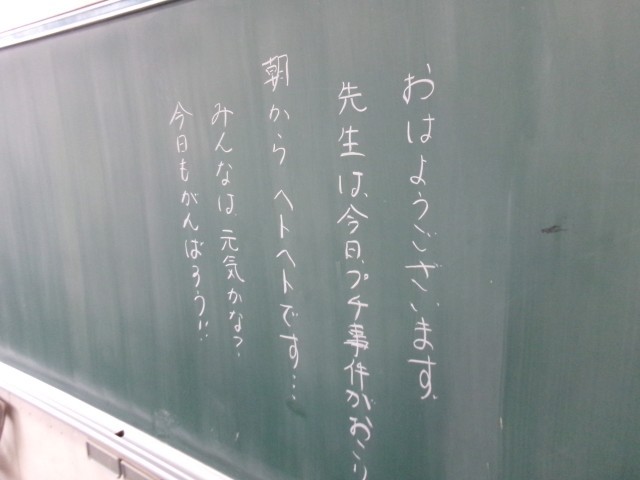 おはようございます。
先生は、今日、プチ事件がおこり
朝から ヘトヘトです…
みんなは、元気かな？
今日もがんばろう!!